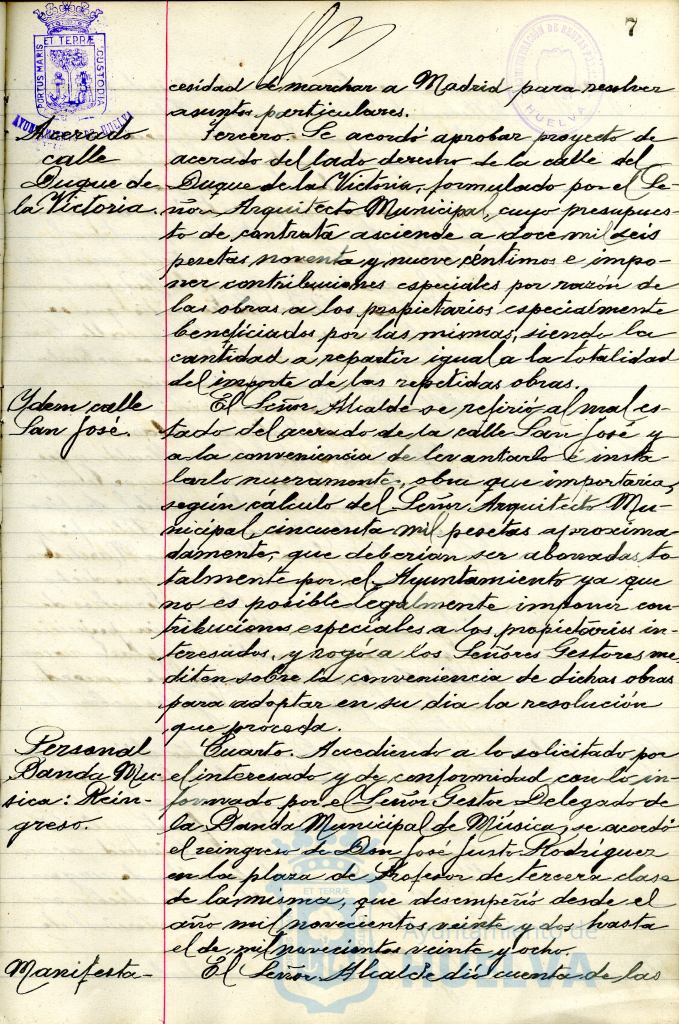 7
PORTUS MARIS ET TERRÆ CUSTODIA
AYUNTAMIENTO DE HUELVA
HUELVA
cesidad de marchar a Madrid para resolver
asuntos particulares.
Acerado
calle
Duque de
la Victoria.
Tercero. Se acordó aprobar proyecto de
acerado del lado derecho de la calle del
Duque de la Victoria, formulado por el Se-
ñor Arquitecto Municipal, cuyo presupues-
to de contrata asciende a doce mil seis
pesetas noventa y nueve céntimos e impo-
ner contribuciones especiales por razón de
las obras a los propietarios especialmente
beneficiados por las mismas, siendo la
cantidad a repartir igual a la totalidad
del importe de las repetidas obras.
Ydem calle
San José.
El Señor Alcalde se refirió al mal es-
tado del acerado de la calle San José y
a la conveniencia de levantarlo é insta
larlo nuevamente, obra que importaria,
según cálculo del Señor Arquitecto Mu-
nicipal, cincuenta mil pesetas aproxima
damente, que deberían ser abonadas to
talmente por el Ayuntamiento ya que
no es posible legalmente imponer con-
tribuciones especiales a los propietarios in-
teresados, y rogó a los Señores Gestores me-
diten sobre la conveniencia de dichas obras
para adoptar en su dia la resolución
que proceda.
Personal
Banda Mú-
sica: Rein-
greso.
Cuarto. Accediendo a lo solicitado por
el interesado y de conformidad con lo in-
formado por el Señor Gestor Delegado de
la Banda Municipal de Música, se acordó
el reingreso de Don José Justo Rodríguez
en la plaza de Profesor de tercera clase
de la misma, que desempeñó desde el
año mil novecientos veinte y dos hasta
el de mil novecientos veinte y ocho.
Manifesta-
El Señor Alcalde dió cuenta de las
ET TERRÆ
Ayuntamiento de
HUELVA